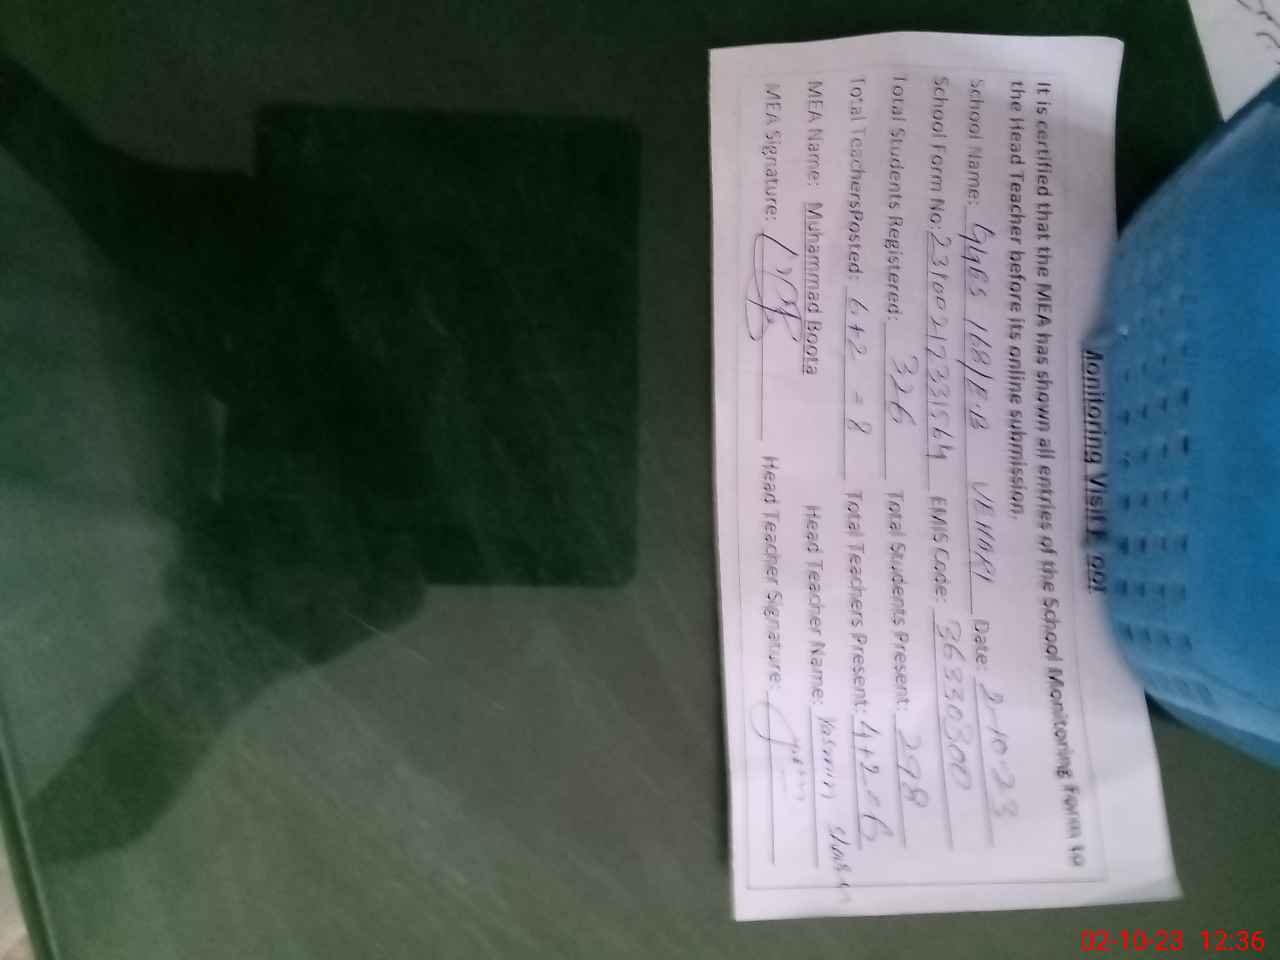 Monitoring Visit
It is certified that the MEA has shown all entries of the School Monitoring Form to
the Head Teacher before its online submission.
School Name: GGES 168/E.B VEHARI Date: 2-10-23
School Form No: EMIS Code: 36330300
Total Students Registered: 326 Total Students Present: 298
Total TeachersPosted: 6+2 = 8 Total Teachers Present: 4+2=6
MEA Name: Muhammad Boota Head Teacher Name: Yasmin
MEA Signature: Head Teacher Signature:
02-10-23 12:36